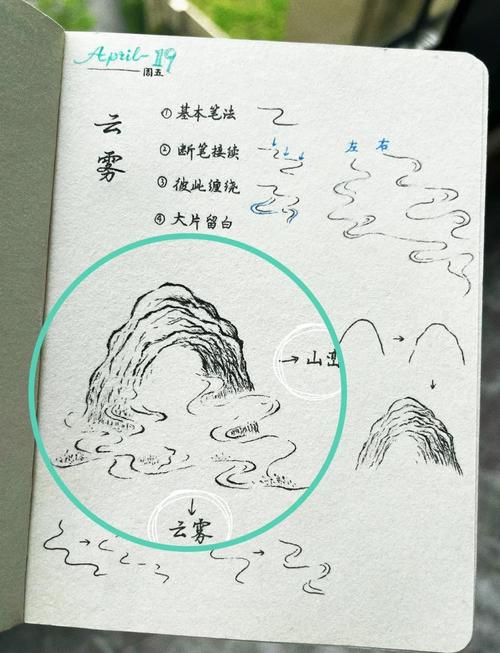 April-19
周五
云雾
① 基本笔法
② 断笔接续
③ 彼此缠绕
④ 大片留白
左 右
→ 山峦
云雾